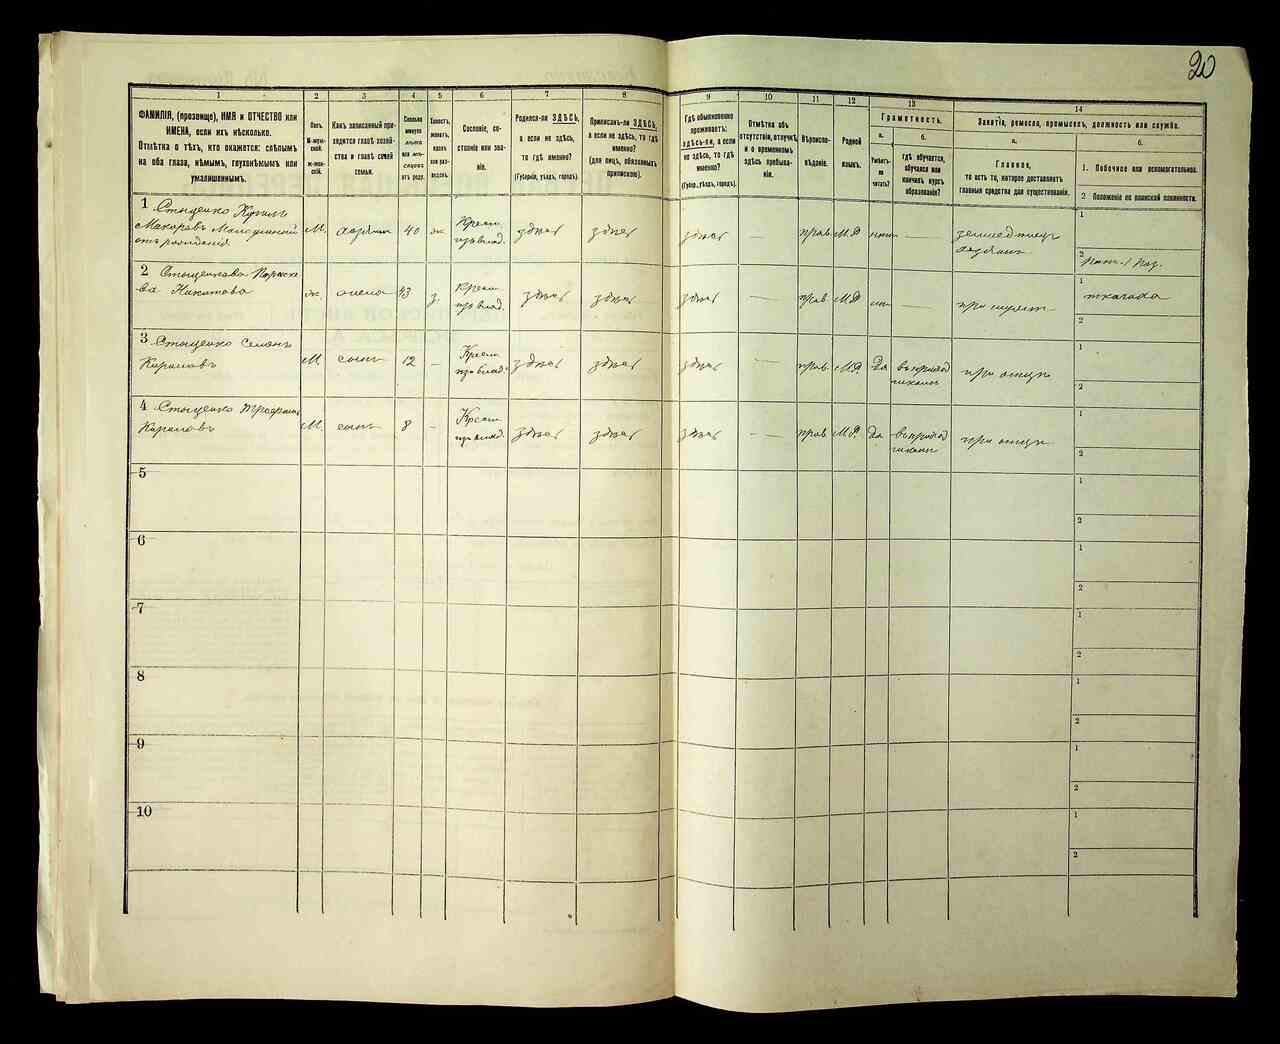 20
1
2
3
4
5
6
7
8
9
10
11
12
13
14
ФАМИЛІЯ, (прозвище), ИМЯ и ОТЧЕСТВО или
ИМЕНА, если ихъ нѣсколько.
Отмѣтка о тѣхъ, кто окажется: слѣпымъ
на оба глаза, нѣмымъ, глухонѣмымъ или
умалишеннымъ.
Полъ.
М-муж-
ской.
ж-жен-
скій.
Какъ записанный при-
ходится главѣ хозяй-
ства и главѣ своей
семьи.
Сколько
минуло
лѣтъ
или мѣ-
сяцевъ
отъ роду.
Холостъ,
женатъ,
вдовъ
или раз-
веденъ.
Сословіе, со-
стояніе или зва-
ніе.
Родился-ли ЗДѢСЬ,
а если не здѣсь,
то гдѣ именно?
(Губернія, уѣздъ, городъ).
Приписанъ-ли ЗДѢСЬ,
а если не здѣсь, то гдѣ
именно?
(для лицъ, обязанныхъ
припискою).
Гдѣ обыкновенно
проживаетъ:
здѣсь-ли, а если
не здѣсь, то гдѣ
именно?
(Губер., уѣздъ, городъ).
Отмѣтка объ
отсутствіи, отлучкѣ
и о временномъ
здѣсь пребыва-
ніи.
Вѣроиспо-
вѣданіе.
Родной
языкъ.
Грамотность.
а.
Умѣетъ-
ли
читать?
б.
гдѣ обучается,
обучался или
кончилъ курсъ
образованія?
Занятіе, ремесло, промыселъ, должность или служба.
а.
Главное,
то есть то, которое доставляетъ
главныя средства для существованія.
б.
1. Побочное или вспомогательное.
2. Положеніе по воинской повинности.
1 Стыценко Кирилъ
Макаровъ
отъ рожденія
М. хозяинъ 40 ж. Крест. здѣсь здѣсь здѣсь — прав М.Р. нѣтъ —
земледѣлецъ
хозяинъ
1
2
2 Стыценкова Параске
ва Никитова
ж. жена 43 з. Крест. здѣсь здѣсь здѣсь — прав М.Р. — при мужѣ
1 ткачиха
2
3 Стыценко Семенъ
Кириловъ
М. сынъ 12 — Крест. здѣсь здѣсь здѣсь — прав М.Р. да при отцѣ
1
2
4 Стыценко Трофимъ
Кириловъ
М. сынъ 8 — Крест. здѣсь здѣсь здѣсь — прав М.Р. да при отцѣ
1
2
5
1
2
6
1
2
7
1
2
8
1
2
9
1
2
10
1
2